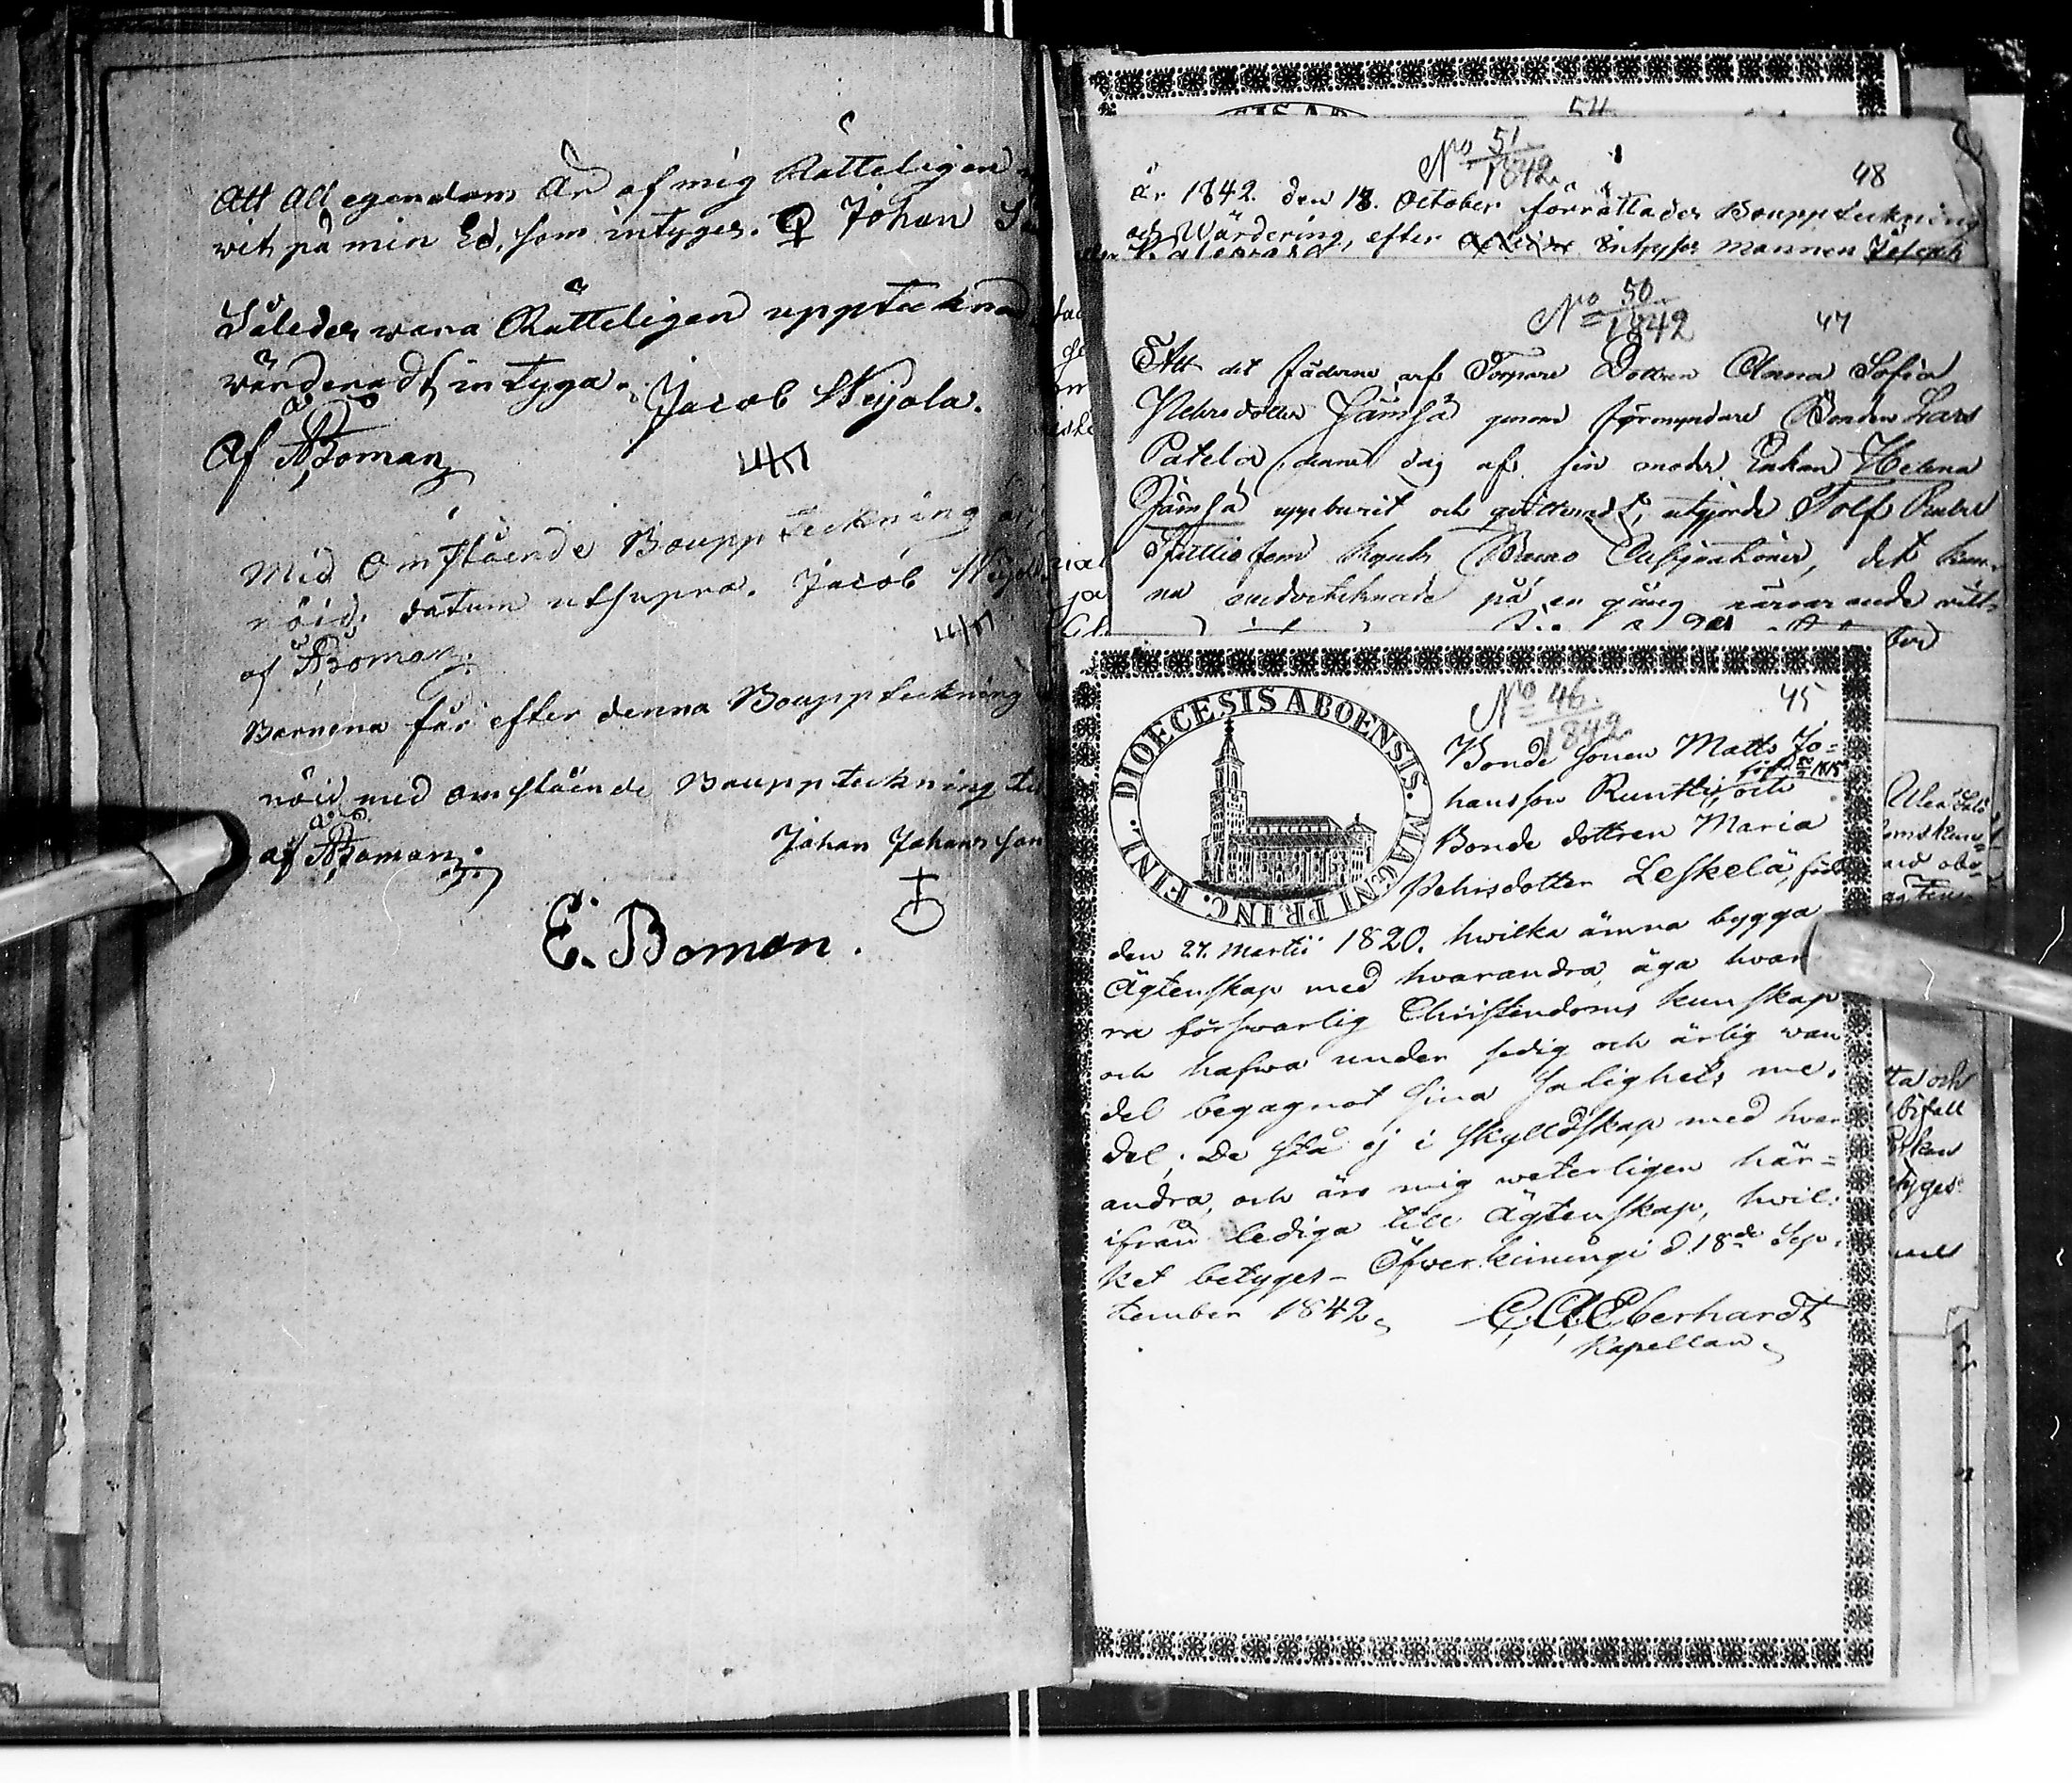 Att All egendom är af mig Rätteligen
vet på min Ed, som intyges. Johan
Således wara Rätteligen upptecknad
wärderadt, intyga. Jacob Weijola.
af ABoman
Med Omstående Bouppteckning är
nöid, datum utsupra. Jacob Weijola
af ABoman.
Barnena får efter denna Bouppteckning
nöid med omstående Bouppteckning
af ABoman. Johan Johansson
E. Boman.
54
No 51/1842 48
År 1842. den 18. October förrättades Bouppteckning
och Wärdering, efter Inhyses mannen Joseph
No 50/1842 47
Att det fäderne arf Torpare Dottren Anna Sofia
Pehrsdotter Jämsä genom förmyndare Bonden Lars
Patela denna dag af sin moder Enkan Helena
Jämsä uppburit och qvitterat, utgörde Tolf Rubel
Sjuttiofem kopek Banco Assignationer, det kun-
na undertecknade på en gång närvarande witt-
DIOECESIS ABOENSIS. MAGNI PRINC. FINL.
No 46./1842 45
Bonde sonen Matts Jo=
hansson Runtti, och
född 1815
Bonde dottren Maria
Pehrsdotter Leskelä, född
den 27. Martii 1820. hwilka ämna bygga
Ägtenskap med hvarandra, äga hvar
ra förswarlig Christendoms kunskap
och hafwa under sedig och ärlig wan
del begagnat sina salighets me-
del; De stå ej i skylldskap med hvar
andra, och äro mig weterligen här=
ifrån lediga till Ägtenskap, hwil-
ket betyges – Öfwerkiimingi d. 18de Sep-
tember 1842. C. A. Eberhardt
Kapellan